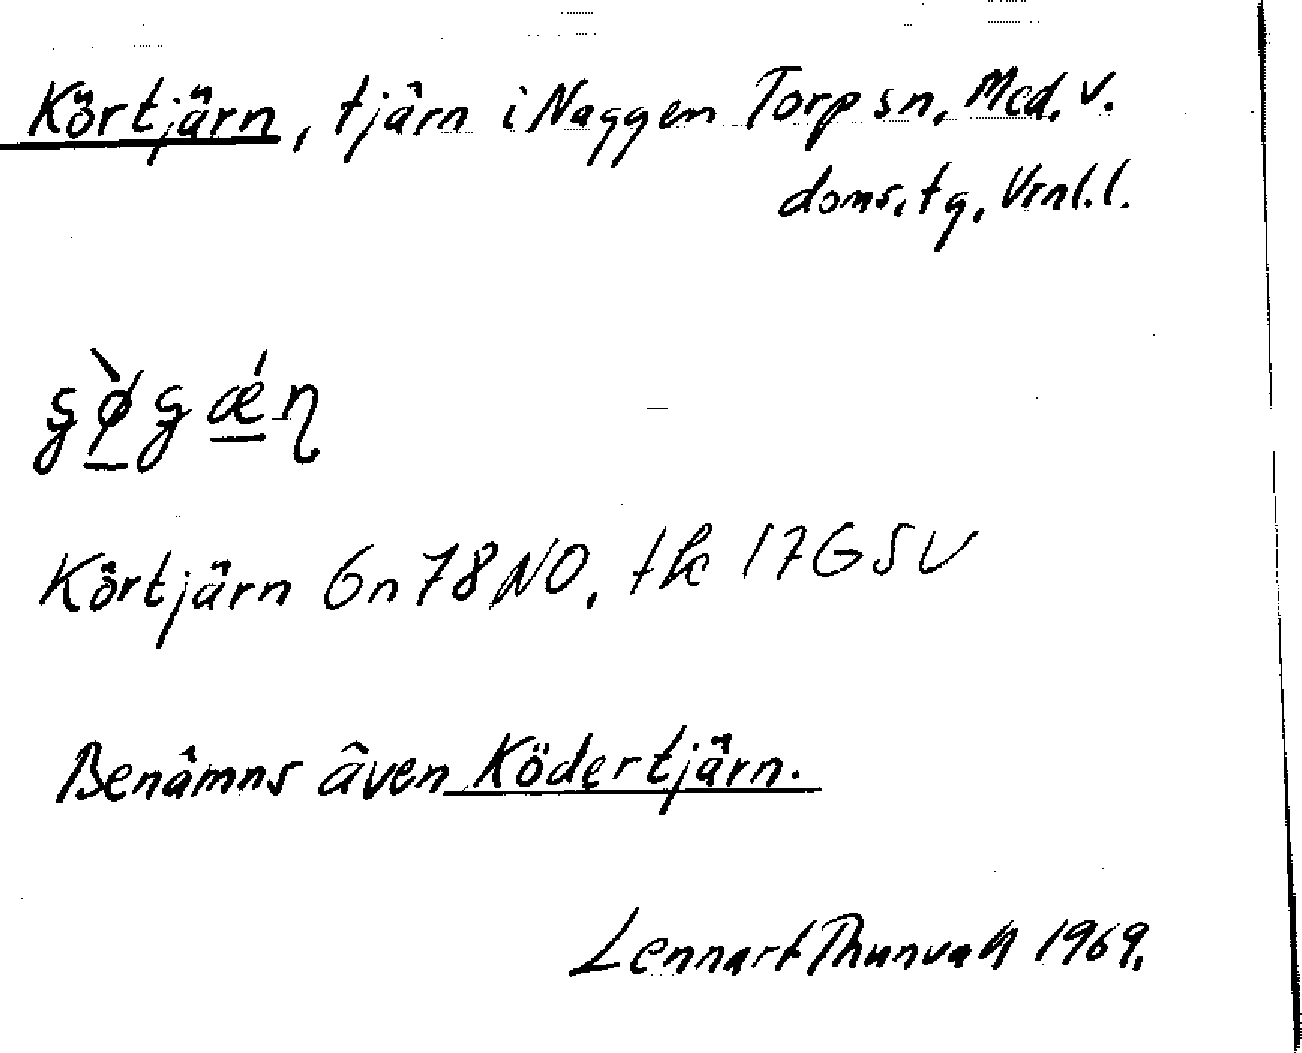 Körtjärn, tjärn i Naggen Torp sn. Med. v.
doms. tg. Vrnl. l.
Körtjärn Gn 78 NO, tk 17G SV
Benämns även Ködertjärn.
Lennart Thunvall 1969.